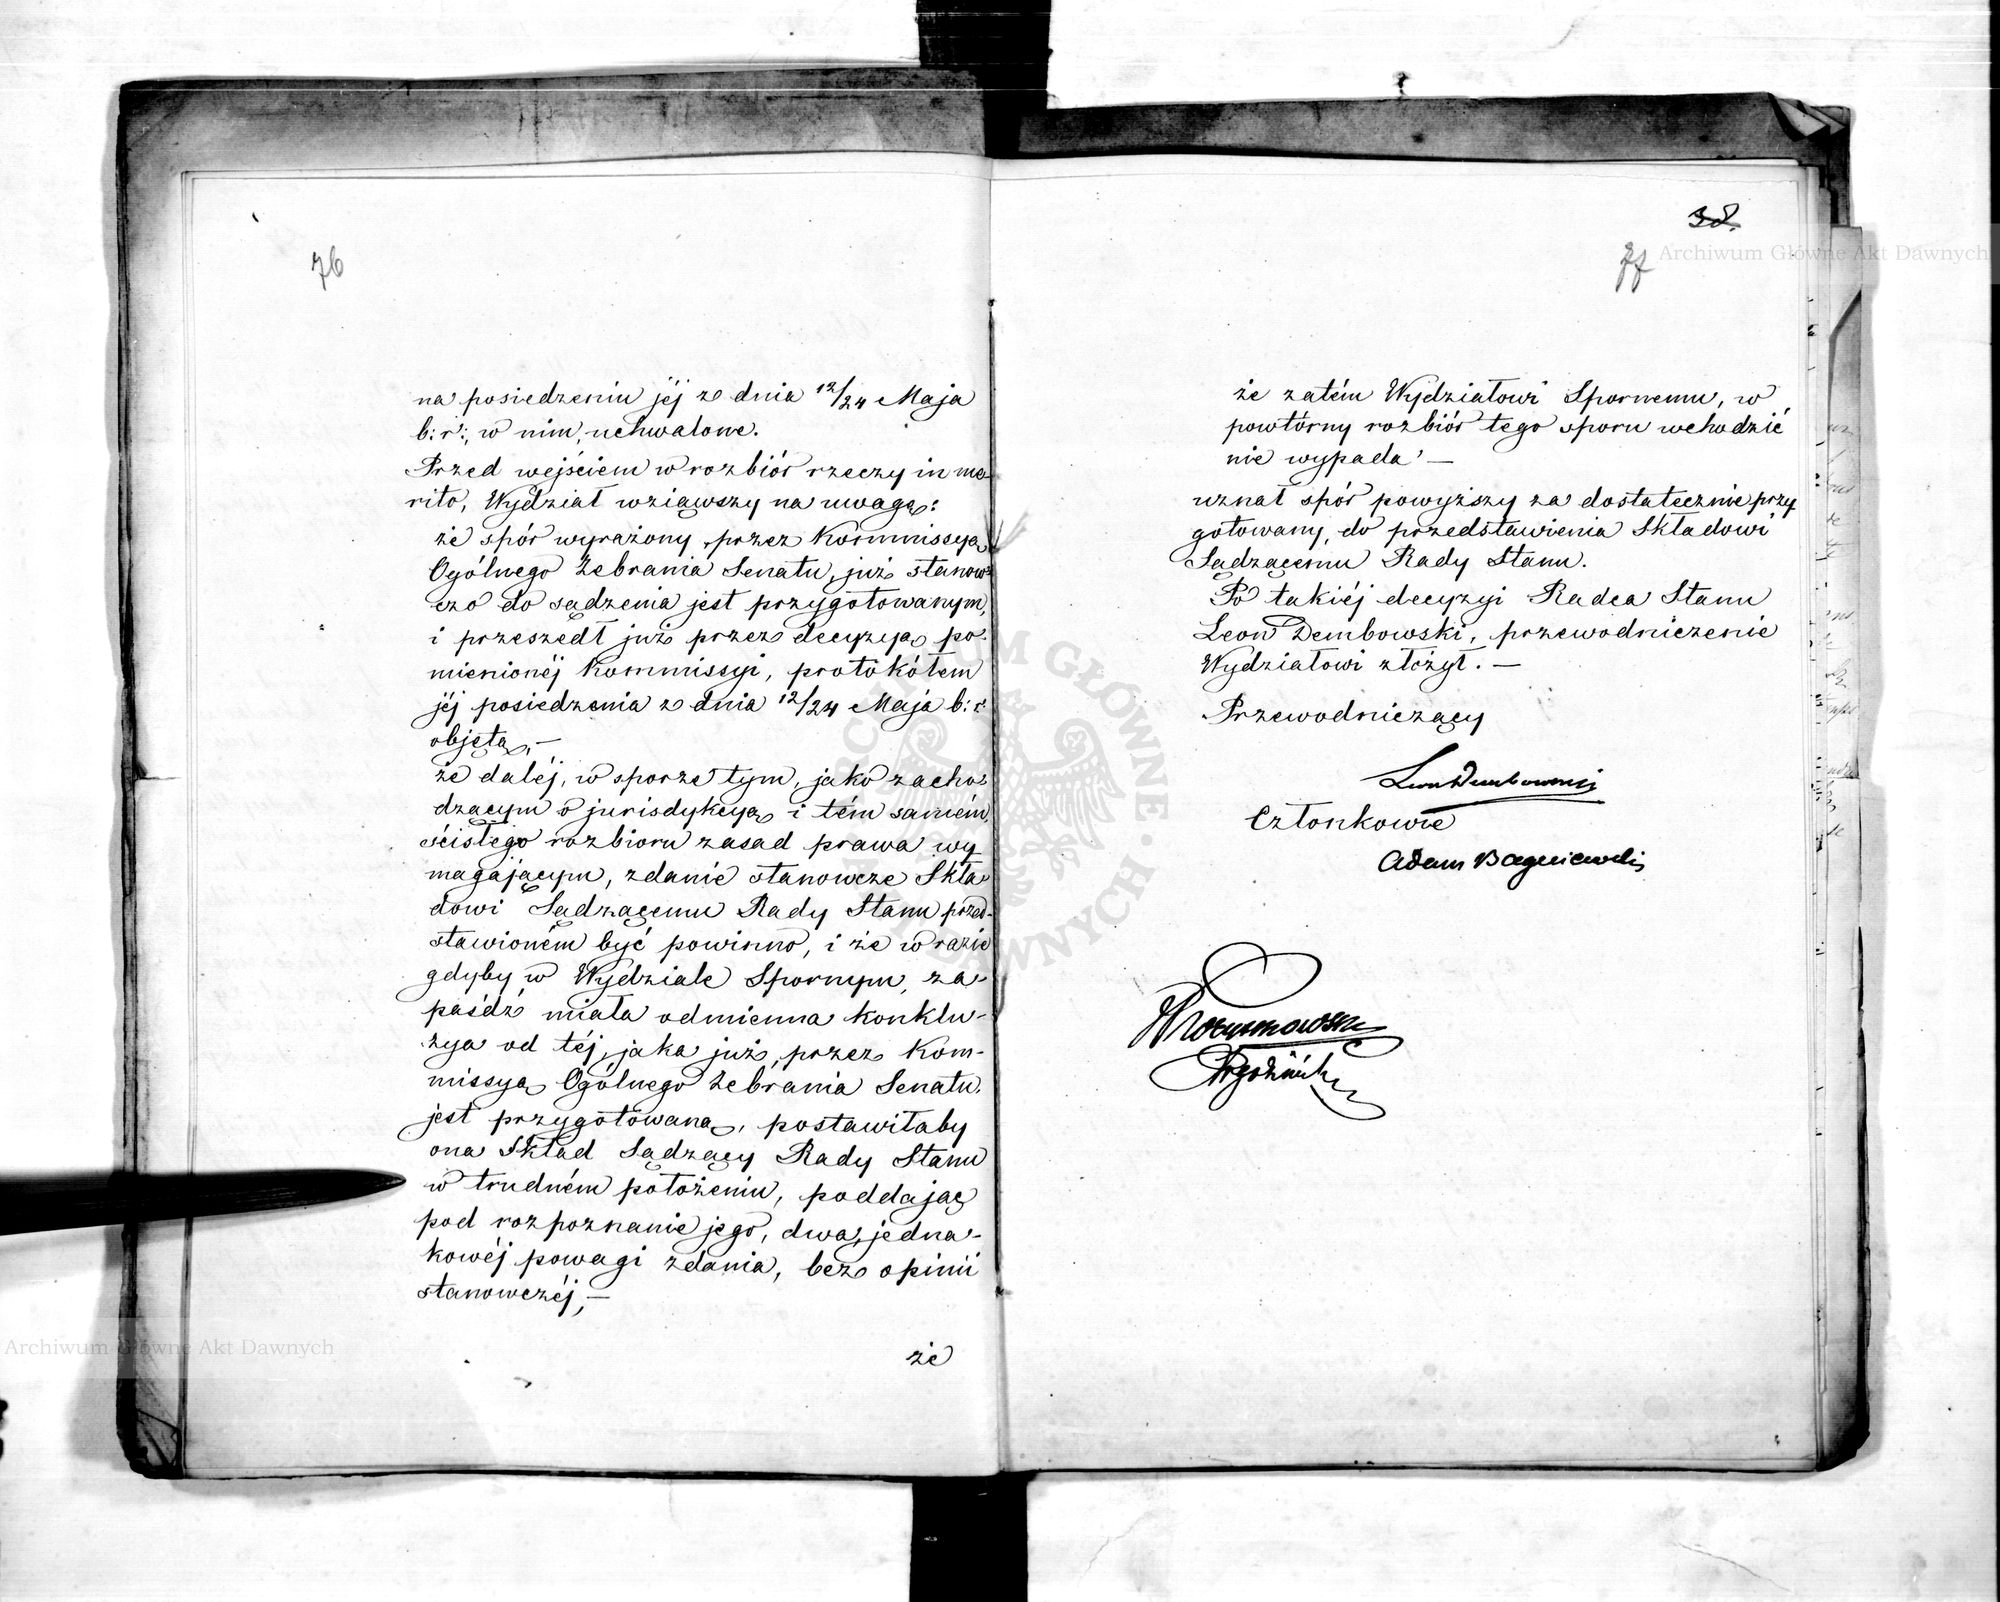 76
na posiedzeniu jéj z dnia 12/24 Maja
b: r:, w nim, uchwalone.
Przed wejściem w rozbiór rzeczy in me-
rito, Wydział wziąwszy na uwagę:
że spór wyrażony, przez Kommissyą
Ogólnego Zebrania Senatu, już stanow-
czo do sądzenia jest przygotowanym,
i przeszedł już przez decyzyą po-
mienionéj Kommissyi, protokółem
jéj posiedzenia z dnia 12/24 Maja b: r:
objętą, —
że daléj, w sporze tym, jako zacho-
dzącym o jurisdykcyą i tém samém,
ścisłego rozbioru zasad prawa wy
magającym, zdanie stanowcze Skła-
dowi Sądzącemu Rady Stanu przed-
stawioném być powinno, i że w razie
gdyby w Wydziale Spornym, za-
paśdź miała odmienna konklu-
zya od téj, jaka już, przez Kom-
missyą Ogólnego Zebrania Senatu,
jest przygotowaną, postawiłaby
ona Skład Sądzący Rady Stanu
w trudném położeniu, poddając
pod rozpoznanie jego, dwa, jedna-
kowéj powagi zdania, bez opinii
stanowczéj, —
że
38.
77
że zatém Wydziałowi Spornemu, w
powtórny rozbiór tego sporu wchodzić
nie wypada, —
uznał spór powyższy za dostatecznie przy
gotowany, do przedstawienia Składowi
Sądzącemu Rady Stanu.
Po takiéj decyzyi Radca Stanu
Leon Dembowski, przewodniczenie
Wydziałowi złożył. —
Przewodniczący
Leon Dembowski
Członkowie
Adam Bagniewski
Archiwum Główne Akt Dawnych
Archiwum Główne Akt Dawnych
ARCHIWUM GŁÓWNE AKT DAWNYCH